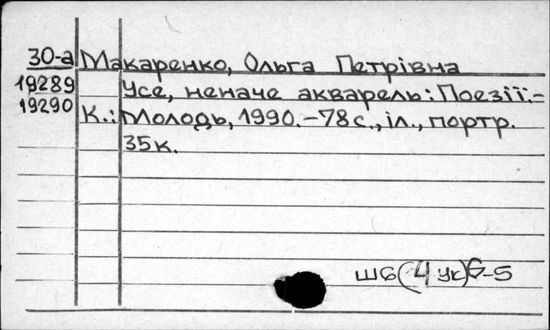 30-а Макаренко, Ольга Петрівна
19289 Усе, неначе акварель: Поезії.–
19290 К.: Молодь, 1990.–78с., іл., портр.
35к.
Ш6(4Ук)6-5